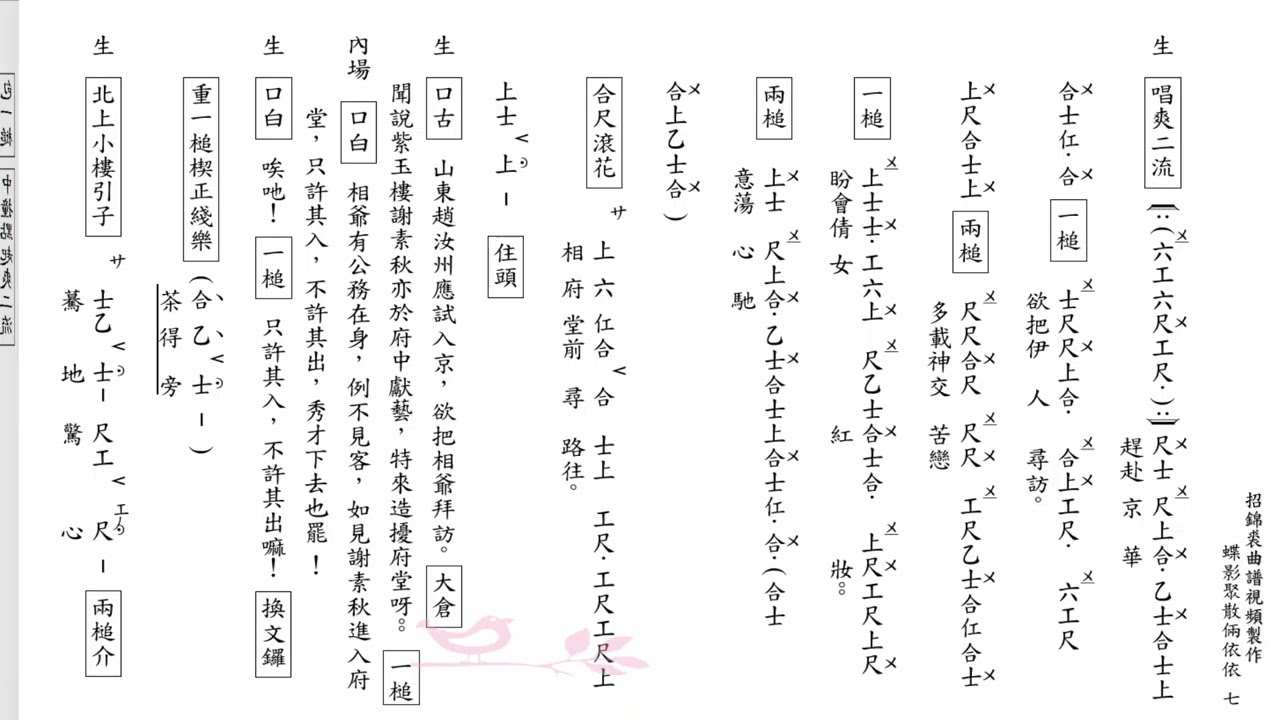 招錦裘曲譜視頻製作
蝶影聚散倆依依 七
生 唱爽二流 (六工六尺工尺．) 尺士 尺上合．乙士合士上
趕赴 京 華
合士仜．合 一槌 士尺尺上合． 合上工尺． 六工尺
欲把伊 人 尋訪。
上尺合士上 兩槌 尺尺合尺 尺尺 工尺乙士合仜合士
多載神交 苦戀
一槌 上士士．工六上 尺乙士合士合． 上尺工尺上尺
盼會倩 女 紅 妝。。
兩槌 上士 尺上合．乙士合士上合士仜．合．(合士
意蕩 心 馳
合上乙士合)
合尺滾花 サ 上 六 仜合 合 士上 工尺．工尺工尺上
相 府 堂前 尋 路往。
上士 上 – 住頭
生 口古 山東趙汝州應試入京，欲把相爺拜訪。 大倉
聞說紫玉樓謝素秋亦於府中獻藝，特來造擾府堂呀。。 一槌
內場 口白 相爺有公務在身，例不見客，如見謝素秋進入府
堂，只許其入，不許其出，秀才下去也罷！
生 口白 唉吔！ 一槌 只許其入，不許其出嘛！ 換文鑼
重一槌楔正綫樂 (合、乙、士 – )
茶得 旁
生 北上小樓引子 サ 士乙 士– 尺工 工尺 – 兩槌介
驀 地 驚 心
包一槌 中撞點起爽二流